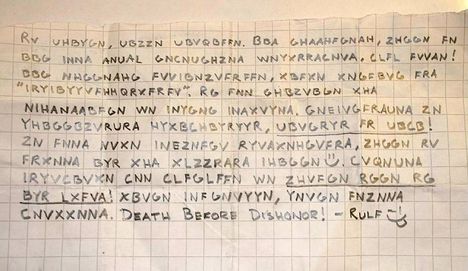 RV UHBYGN, UBZZN UBVQBFFN. BBA GHAAHFGNAH, ZHGGN FN
BBG INNA ANUAL GNCNUGHZNA WNYXRRACNVA. CLFL FVVAN!
BBG NHGGNAHG FVVIBNZVFRFFN, XBFXN XNGFBVG FRA
"IRYIBYYVFHHQRXFRFV". RG FNN GHBZVBGN XHA
NIHANAABFGN WN INYGNG INAXVYNA. GNEIVGFRAUNA ZN
YHBGGBZVRURA HYXBCHBYRYYR, UBVGRYR FR UBCB!
ZN FNNA NVXN INEZNFGV RYVAXNHGVFRA, ZHGGN RV
FRXNNA BYR XHA XLZZRARA IHBGGN☺. CVQNUNA
IRYVCBVXN CNN CLFGLFFN WN ZHVFGN RGGN RG
BYR LXFVA! XBVGN INFGNVYYN, YNVGN FNZNNA
CNVXXNNA. DEATH BEFORE DISHONOR! - RULF☺